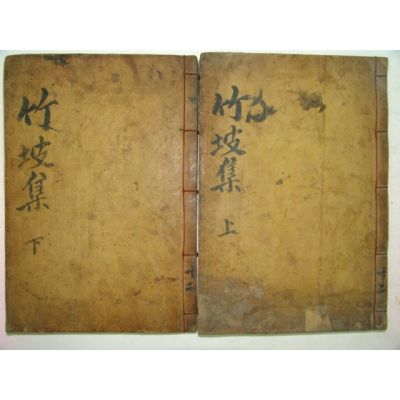 竹坡集
上
竹坡集
下